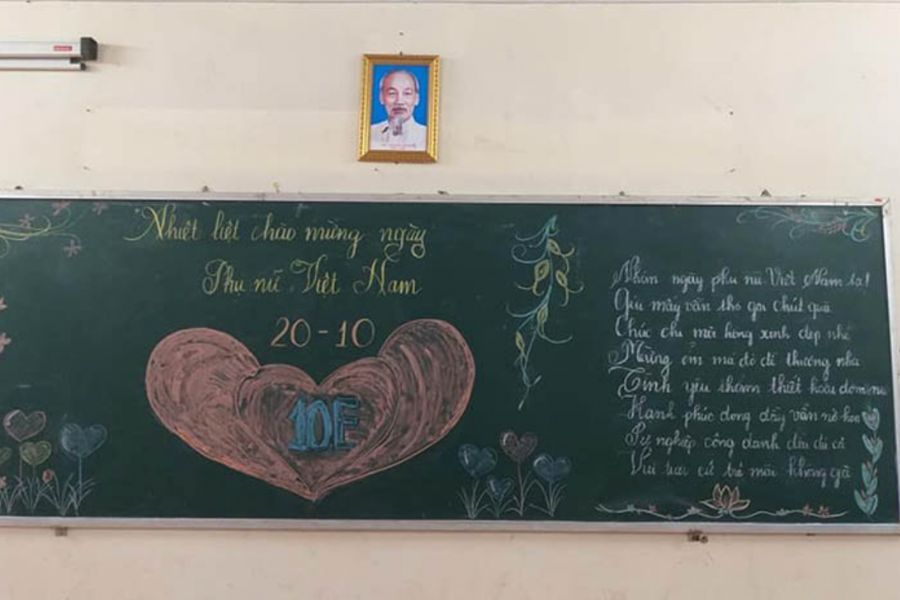 Nhiệt liệt chào mừng ngày
Phụ nữ Việt Nam
20-10
10E
Nhân ngày phụ nữ Việt Nam ta!
Gửi mấy vần thơ gọi chút quà
Chúc chị mãi hồng xinh đẹp nhé
Mừng em má đỏ dễ thương nha
Tình yêu thơm thiết hoài
Hạnh phúc dong đầy vẫn nở hoa
Sự nghiệp công danh đều đủ cả
Vui tươi cứ trẻ mãi không già